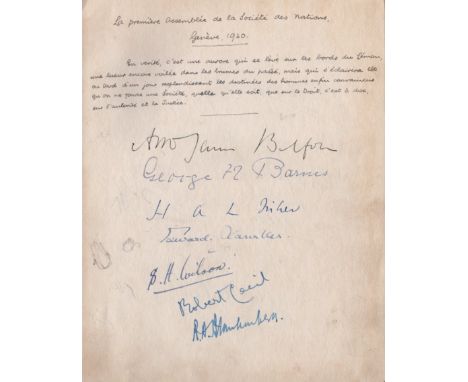 La première Assemblée de la Société des Nations.
Genève 1920.
En vérité, c'est une aurore qui se lève sur les bords du Léman,
une lueur encore voilée dans les brumes du passé, mais qui s'éclairera tôt
ou tard d'un jour resplendissant les destinées des hommes enfin convaincus
qu'on ne fonde une Société, quelle qu'elle soit, que sur le Droit, c'est à dire,
sur l'autorité et la Justice.
Arthur James Balfour
George N Barnes
H A L Fisher
Edward
S. H. Wilson.
Robert Cecil